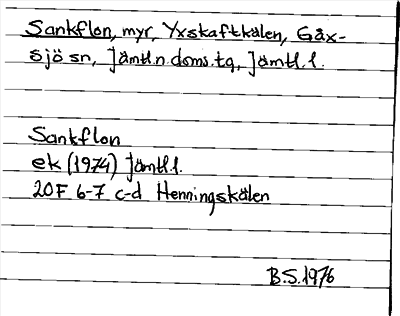 Sankflon, myr, Yxskaftkälen, Gåx-
sjö sn, Jämtl.n.doms.tg, Jämtl.l.
Sankflon
ek (1974) Jämtl.l.
20F 6-7 c-d Henningskälen
B.S.1976